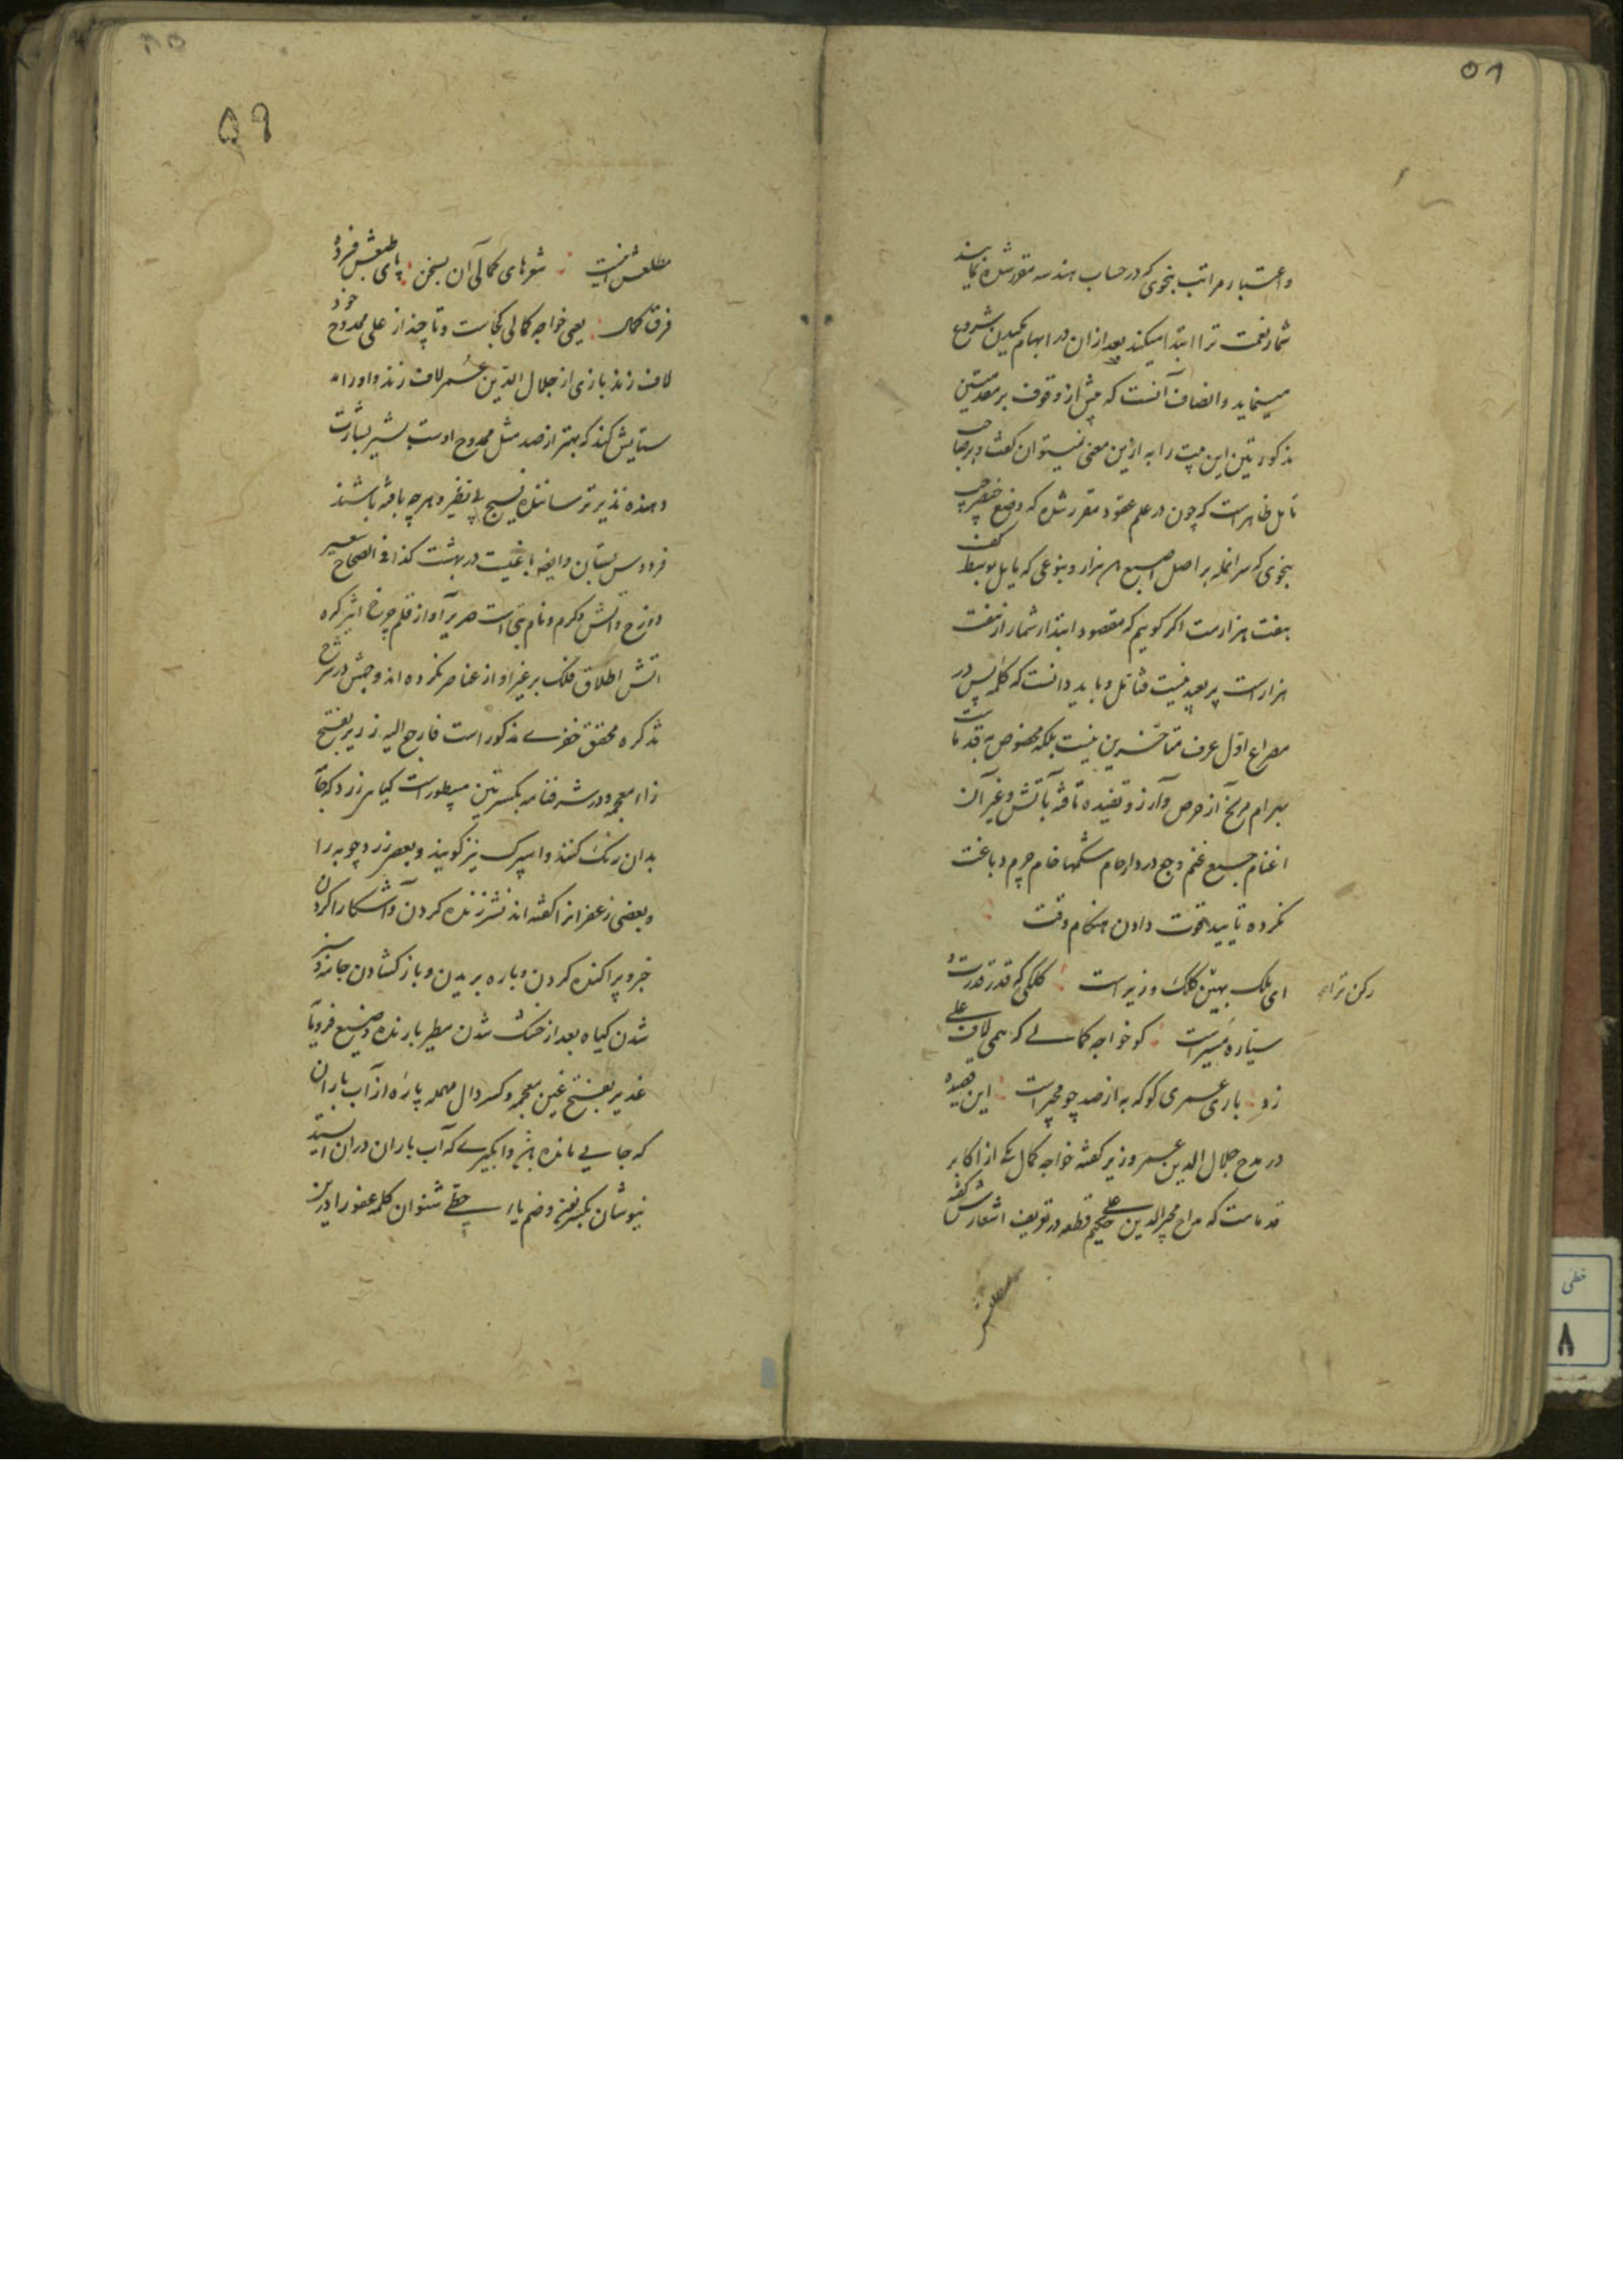 ۵۸
و اعتبار مراتب بنحوی که در حساب هندسه مقرر شده نمایند
شمار نعمت ترا ابتدا میکند بعد از ان در ابهام مکیدن شروع
مینماید و انصاف آنست که پیش از وقوف بر مقدمتین
مذکورتین این بیت را به ازین معنی نمیتوان گفت و بر صاحب
تامل ظاهر است که چون در علم عقود مقرر شده که وضع خنصر چپ
بنحوی که سر انمله بر اصل اصبع هزار و بنوعی که مایل بوسط کف
هفت هزارست اکر کویم که مقصود ابتدا شمار از هفت
هزار است پر بعید نیست فتامل و باید دانست که کلمه پس در
مصراع اول عرف متاخرین نیست بلکه مخصوص به قدماست
بهرام مریخ آز حرص و آرزو تفیده تافته بآتش و غیر آن
اغنام جمیع غنم وجع درد ارحام شکمها خام چرم دباغت
نکرده تایید قوت دادن هنکام وقت
رکن ترا
ای ملک بهین کلک وزیر است کلکی که قدر قدرت و
سیاره مسیر است کو خواجه کمالی که همی لاف علی
زد باری عمری کو که به از صد چو مجیر است این قصیده
در مدح جلال الدین عمر وزیر کفته خواجه کمال یکی از اکابر
قدماست که مداح مجیر الدین علی حکیم قطعه در تعریف اشعارش کفته
مطلعش
۵۹
مطلعش اینست شعرهای کمالی آن بسخن پای طبعش فرده
فرق کمال یعنی خواجه کمالی کجاست و تا چند از علی ممدوح خود
لاف زند باری از جلال الدین عمر لاف زند و او را
ستایش کند که بهتر از صد مثل ممدوح اوست بشیر بشارت
دهنده نذیر ترساننده نسیج بی نظیر و هر چه بافته باشند
فردوس بستان و ایضا باغیست در بهشت کذا فی الصحاح سعیر
دوزخ و آتش و کرم و نام بتی است صریر آواز قلم چرخ اثیر کره
آتش اطلاق فلک بر غیر او از عناصر نکرده اند و جهتش در شرح
تذکره محقق خفری مذکور است فارجع الیه زریر بفتح
زاء معجمه و در شرفنامه بکسرتین مسطور است کیاهی زرد که جامه
بدان رنک کنند و اسپرک نیز کویند و بعضی زردچوبه را
و بعضی زعفرانرا کفته اند نشر زنده کردن و آشکارا کردن
خبر و پراکنده کردن و پاره بریدن و باز کشادن جامه و سبز
شدن کیاه بعد از خشک شدن مطیر بارنده وضیع فرومایه
غدیر بفتح غین معجمه و کسر دال مهمله پاره از آب باران
که جایی مانده باشد و آبکیری که آب باران در آن ایستد
نیوشان بکسر نون و ضم یاء حطی شنوان کلمه عضو را درین
خطی
۸